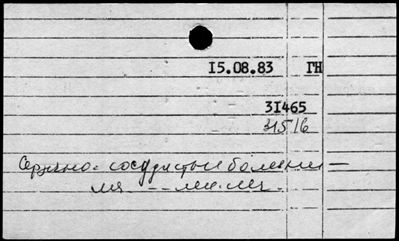 15.08.83 ГН
31465
31516
Сердечно-сосудистые болезни —